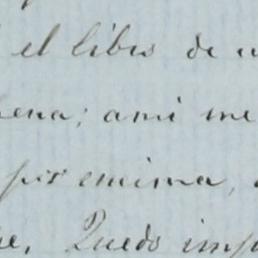 el libro de
ami me
por encima,
Quedo